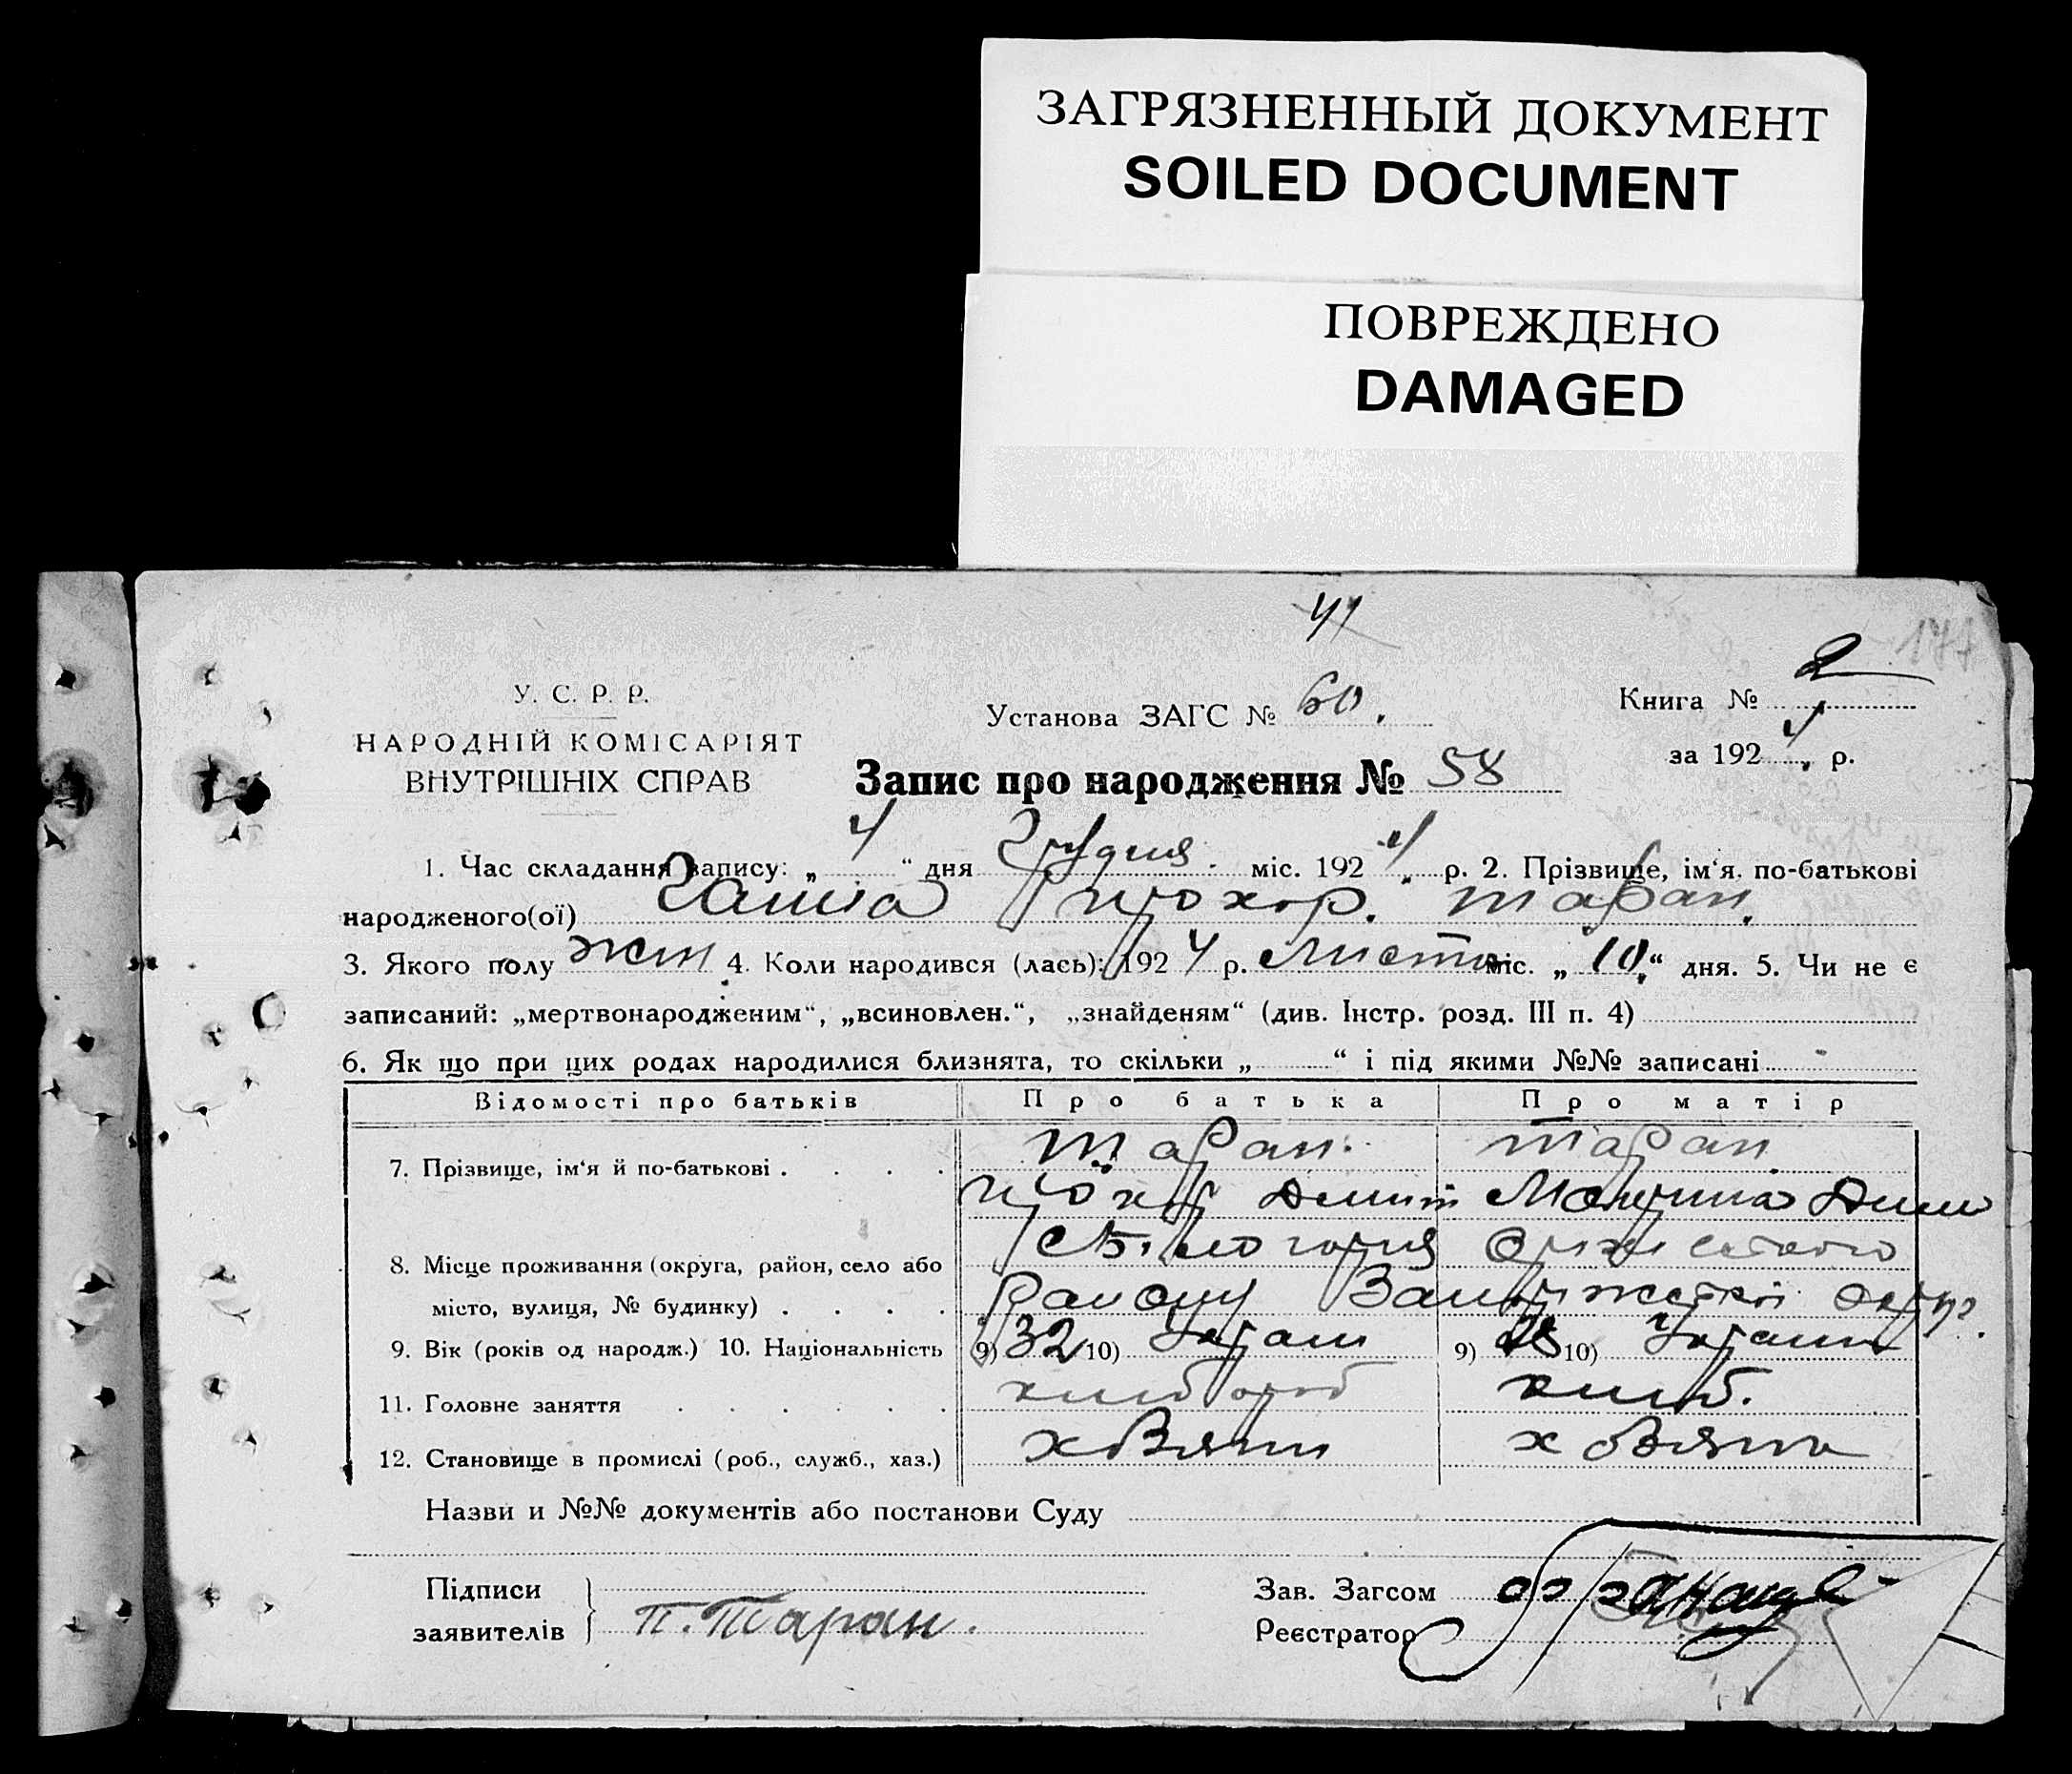 ЗАГРЯЗНЕННЫЙ ДОКУМЕНТ
SOILED DOCUMENT
ПОВРЕЖДЕНО
DAMAGED
41
177
У. С. Р. Р.
НАРОДНІЙ КОМІСАРІЯТ
ВНУТРІШНІХ СПРАВ
Установа ЗАГС № 60.
Книга № 2
за 1924 р.
Запис про народження № 58
1. Час складання запису: „ 4 “ дня Грудня міс. 1924 р. 2. Прізвище, ім‘я, по-батькові
народженого(ої) Ганна Прохор. Таран.
3. Якого полу жін 4. Коли народився (лась): 1924 р. Листо міс. „ 10 “ дня. 5. Чи не є
записаний: „мертвонародженим“, „всиновлен.“, „знайденям“ (див. Інстр. розд. III п. 4)
6. Як що при цих родах народилися близнята, то скільки „ “ і під якими №№ записані
Відомості про батьків Про батька Про матір
7. Прізвище, ім‘я й по-батькові Таран. Таран
Прохор Дмит Марина Дми
8. Місце проживання (округа, район, село або Білогорья
місто, вулиця, № будинку) Району Запоріжської округ.
9. Вік (років од народж.) 10. Національність 9) 32 10) Украін 9) 28 10) Украін
11. Головне заняття хлібороб хліб.
12. Становище в промислі (роб., служб., хаз.) хозяїн хозяїн
Назви и №№ документів або постанови Суду
Підписи
заявителів П. Таран.
Зав. Загсом
Реєстратор